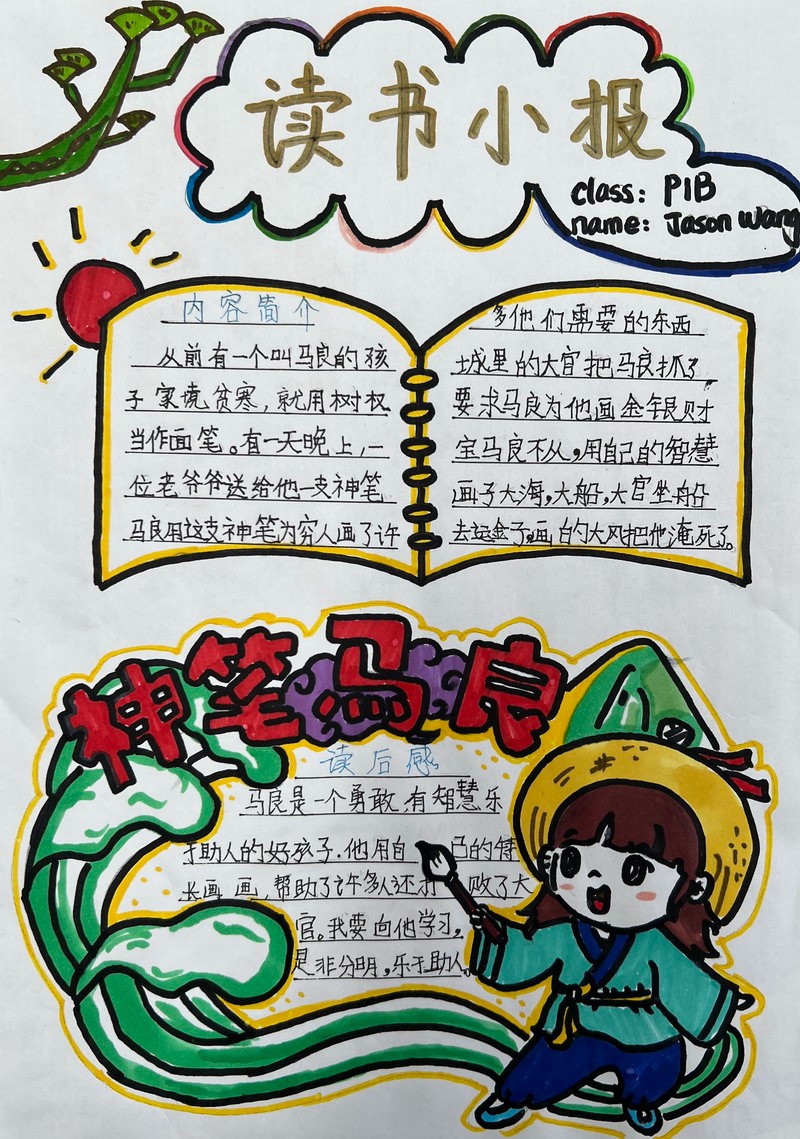 读书小报
class: P1B
name: Jason Wang
内容简介
从前有一个叫马良的孩
子家境贫寒，就用树杈
当作画笔。有一天晚上，一
位老爷爷送给他一支神笔
马良用这支神笔为穷人画了许
多他们需要的东西
城里的大官把马良抓了，
要求马良为他画金银财
宝马良不从，用自己的智慧
画了大海，大船，大官坐船
去运金子，画的大风把他淹死了。
神笔马良
读后感
马良是一个勇敢有智慧乐
于助人的好孩子.他用自己的特
长画画，帮助了许多人还打败了大
官。我要向他学习，
是非分明，乐于助人。